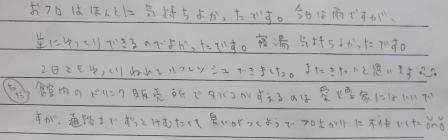 お風呂はほんとに気持ちよかったです。今日は雨ですが、
にゆっくりできるのでよかったです。 気持ちよかったです。
2日ともゆっくりねれてリフレッシュできました。またきたいと思います
ただ 館内のドリンク販売所でタバコがすえるのは愛煙家にはいいで
すが、通路まですっとけむたくて臭いがつくようでフロ上がりに不快でした